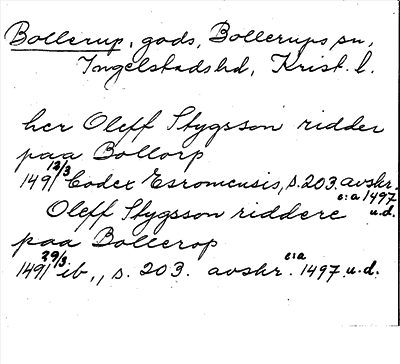 Bollerup, gods, Bollerups sn,
Ingelstads hd, Krist. l.
her Oleff Stygsson ridder
paa Bollorp
1491 12/3 Codex Esromensis, s. 203. avskr.
c:a 1497
u.d.
Oleff Stygsson riddere
paa Bollerop
1491 29/3 ib., s. 203. avskr. c:a 1497 u.d.